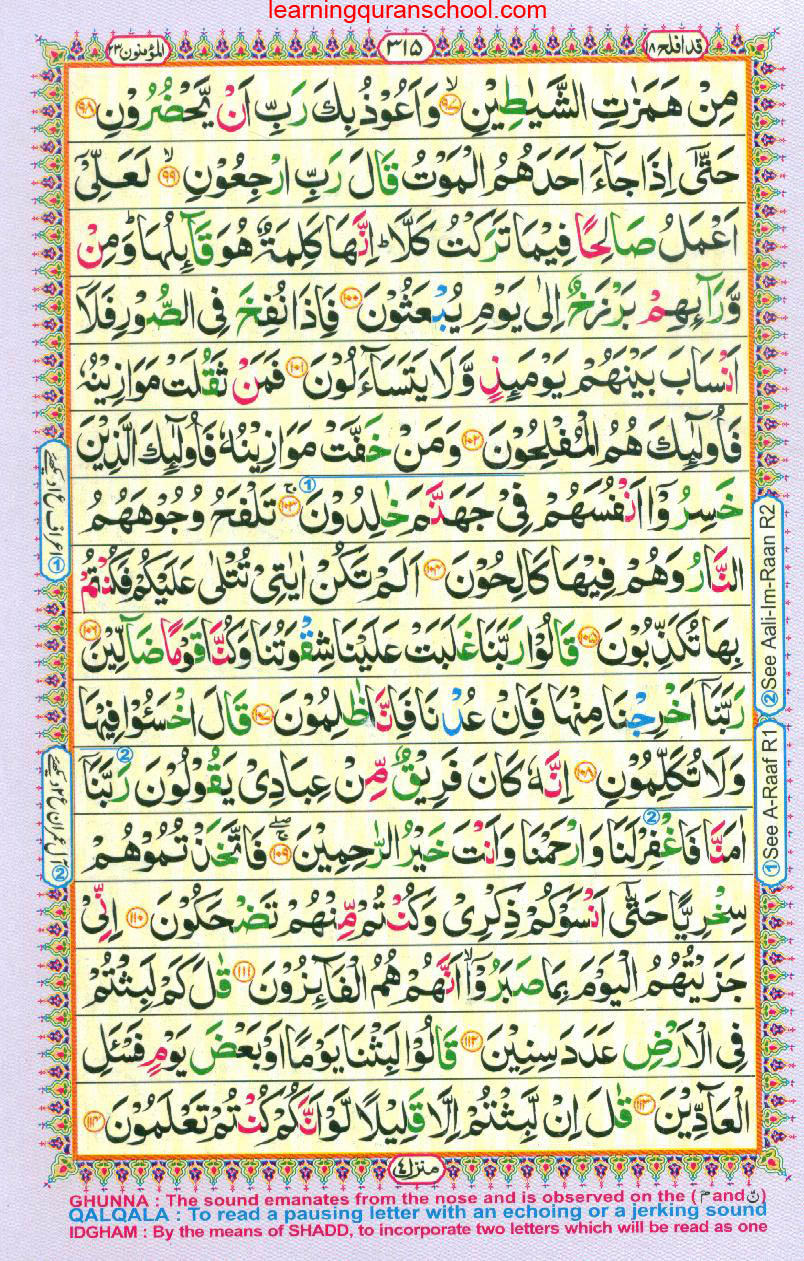 learningquranschool.com
قد افلح ۱۸
۳۱۵
المؤمنون ۲۳
مِنْ هَمَزٰتِ الشَّيٰطِيْنِ ۙ﴿۹۷﴾ وَاَعُوْذُ بِكَ رَبِّ اَنْ يَّحْضُرُوْنِ ﴿۹۸﴾
حَتّٰٓى اِذَا جَآءَ اَحَدَهُمُ الْمَوْتُ قَالَ رَبِّ ارْجِعُوْنِ ۙ﴿۹۹﴾ لَعَلِّىْۤ
اَعْمَلُ صَالِحًا فِيْمَا تَرَكْتُ كَلَّا ؕ اِنَّهَا كَلِمَةٌ هُوَ قَآئِلُهَا ؕ وَمِنْ
وَّرَآئِهِمْ بَرْزَخٌ اِلٰى يَوْمِ يُبْعَثُوْنَ ﴿۱۰۰﴾ فَاِذَا نُفِخَ فِى الصُّوْرِ فَلَاۤ
اَنْسَابَ بَيْنَهُمْ يَوْمَئِذٍ وَّلَا يَتَسَآءَلُوْنَ ﴿۱۰۱﴾ فَمَنْ ثَقُلَتْ مَوَازِيْنُهٗ
فَاُولٰٓئِكَ هُمُ الْمُفْلِحُوْنَ ﴿۱۰۲﴾ وَمَنْ خَفَّتْ مَوَازِيْنُهٗ فَاُولٰٓئِكَ الَّذِيْنَ
خَسِرُوْۤا اَنْفُسَهُمْ فِىْ جَهَنَّمَ خٰلِدُوْنَ ۚ﴿۱۰۳﴾ ① تَلْفَحُ وُجُوْهَهُمُ
النَّارُ وَهُمْ فِيْهَا كَالِحُوْنَ ﴿۱۰۴﴾ اَلَمْ تَكُنْ اٰيٰتِىْ تُتْلٰى عَلَيْكُمْ فَكُنْتُمْ
بِهَا تُكَذِّبُوْنَ ﴿۱۰۵﴾ قَالُوْا رَبَّنَا غَلَبَتْ عَلَيْنَا شِقْوَتُنَا وَكُنَّا قَوْمًا ضَآلِّيْنَ ﴿۱۰۶﴾
رَبَّنَاۤ اَخْرِجْنَا مِنْهَا فَاِنْ عُدْنَا فَاِنَّا ظٰلِمُوْنَ ﴿۱۰۷﴾ قَالَ اخْسَئُوْا فِيْهَا
وَلَا تُكَلِّمُوْنِ ﴿۱۰۸﴾ اِنَّهٗ كَانَ فَرِيْقٌ مِّنْ عِبَادِىْ يَقُوْلُوْنَ ② رَبَّنَاۤ
اٰمَنَّا فَاغْفِرْ لَنَا ② وَارْحَمْنَا وَاَنْتَ خَيْرُ الرّٰحِمِيْنَ ۚۖ﴿۱۰۹﴾ فَاتَّخَذْتُمُوْهُمْ
سِخْرِيًّا حَتّٰٓى اَنْسَوْكُمْ ذِكْرِىْ وَكُنْتُمْ مِّنْهُمْ تَضْحَكُوْنَ ﴿۱۱۰﴾ اِنِّىْ
جَزَيْتُهُمُ الْيَوْمَ بِمَا صَبَرُوْۤا ۙ اَنَّهُمْ هُمُ الْفَآئِزُوْنَ ﴿۱۱۱﴾ قٰلَ كَمْ لَبِثْتُمْ
فِى الْاَرْضِ عَدَدَ سِنِيْنَ ﴿۱۱۲﴾ قَالُوْا لَبِثْنَا يَوْمًا اَوْ بَعْضَ يَوْمٍ فَسْئَلِ
الْعَآدِّيْنَ ﴿۱۱۳﴾ قٰلَ اِنْ لَّبِثْتُمْ اِلَّا قَلِيْلًا لَّوْ اَنَّكُمْ كُنْتُمْ تَعْلَمُوْنَ ﴿۱۱۴﴾
② See Aali-Im-Raan R2
① See A-Raaf R1
منزل ٤
GHUNNA : The sound emanates from the nose and is observed on the (مّ and نّ)
QALQALA : To read a pausing letter with an echoing or a jerking sound
IDGHAM : By the means of SHADD, to incorporate two letters which will be read as one